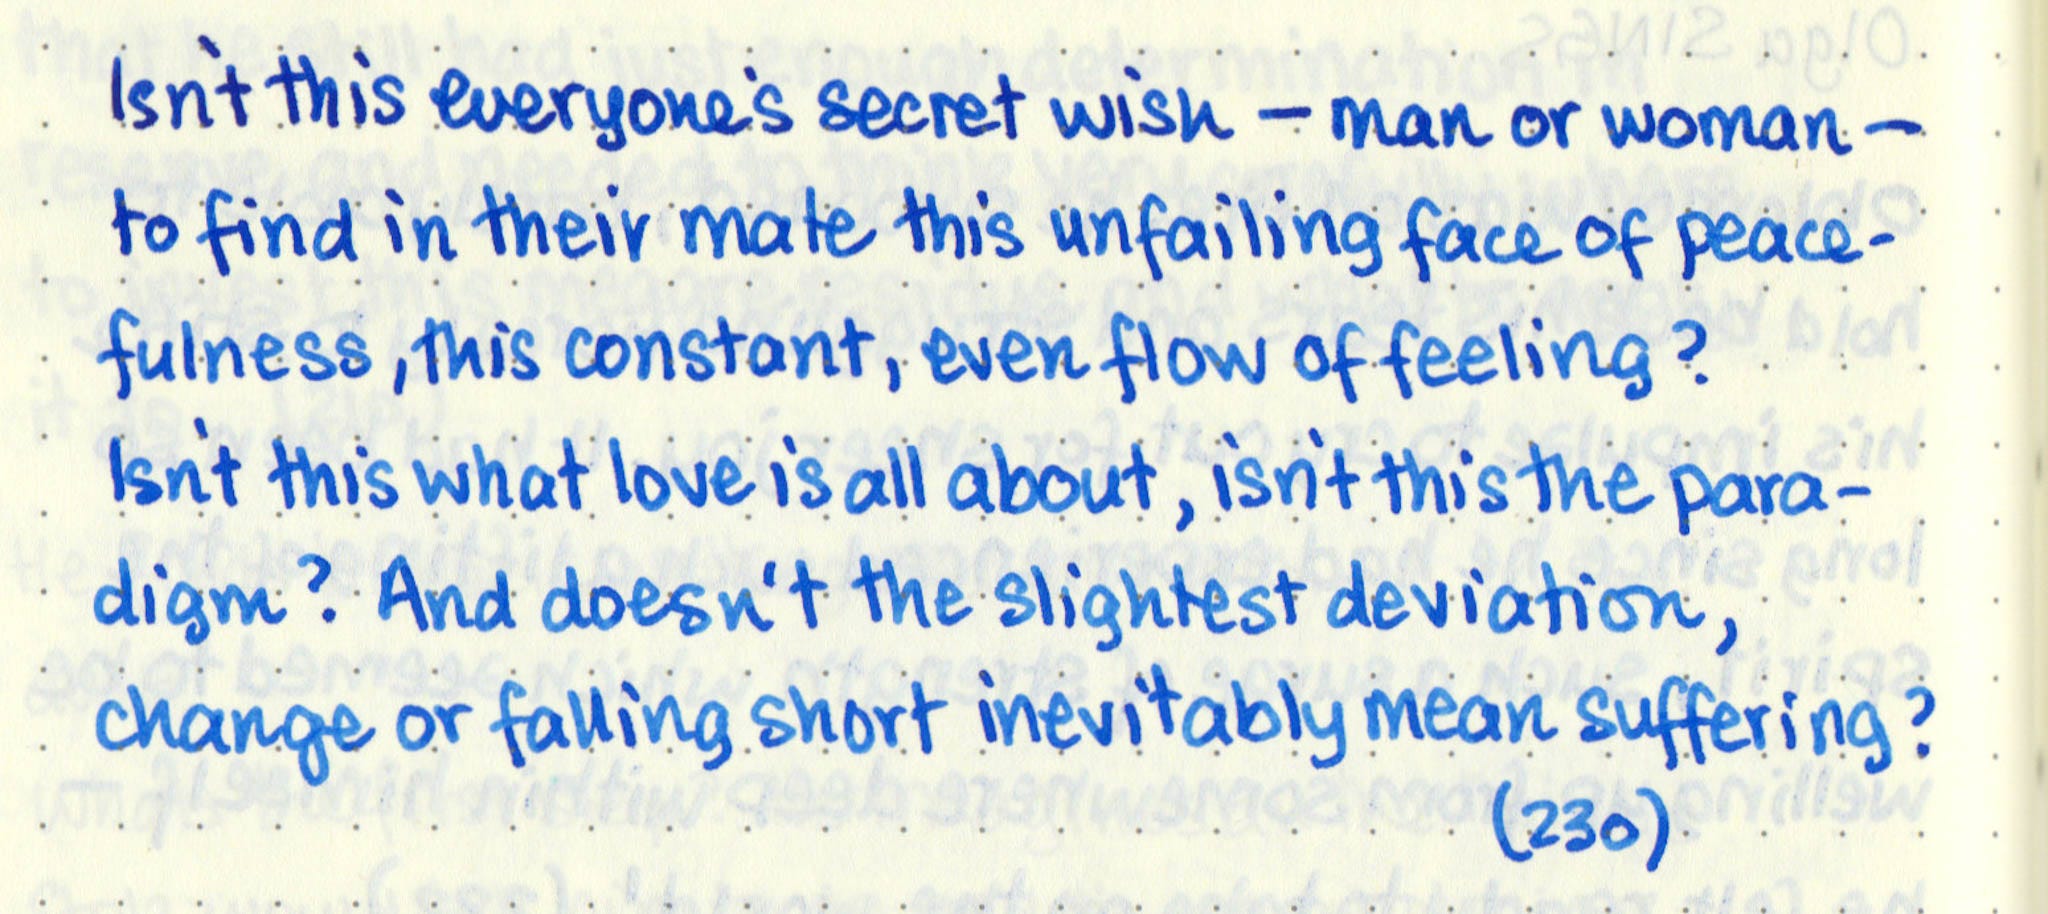 Isn't this everyone's secret wish – man or woman –
to find in their mate this unfailing face of peace-
fulness, this constant, even flow of feeling?
Isn't this what love is all about, isn't this the para-
digm? And doesn't the slightest deviation,
change or falling short inevitably mean suffering?
(230)